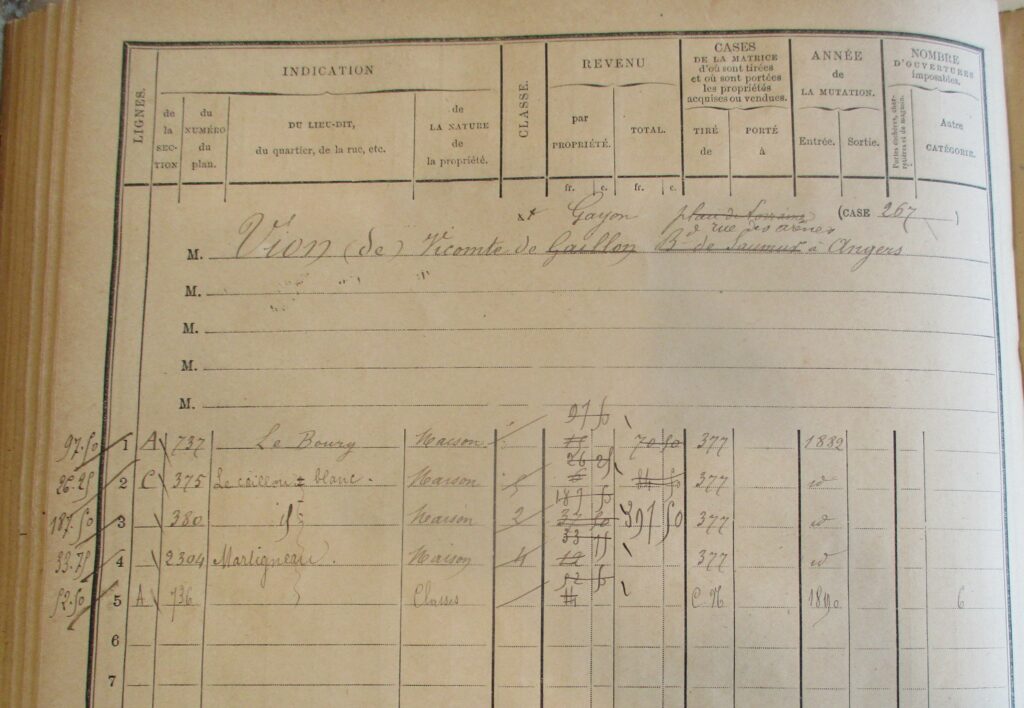 INDICATION
REVENU
CASES
DE LA MATRICE
d'où sont tirées
et où sont portées
les propriétés
acquises ou vendues.
ANNÉE
de
LA MUTATION.
NOMBRE
D'OUVERTURES
imposables.
LIGNES.
de la SECTION
du NUMÉRO du plan.
DU LIEU-DIT,
du quartier, de la rue, etc.
de LA NATURE de la propriété.
CLASSE.
par PROPRIÉTÉ.
TOTAL.
TIRÉ de
PORTÉ à
Entrée.
Sortie.
Autre CATÉGORIE.
fr. c. fr. c.
Gayon rue des arènes (CASE 267)
M. Vion (de) Vicomte de Gaillon Bd de Saumur à Angers
M.
M.
M.
M.
97 50
97.50 1 A 737 Le Bourg Maison 70 50 377 1882
26 25
26.25 2 C 375 Le caillou blanc. Maison 5 377 id
187 50
187.50 3 380 id Maison 2 37 50 397 50 377 id
33 75
33.75 4 2304 Martigneau. Maison 4 12 377 id
52 50
52.50 5 A 736 Classes C.N 1890 6
6
7